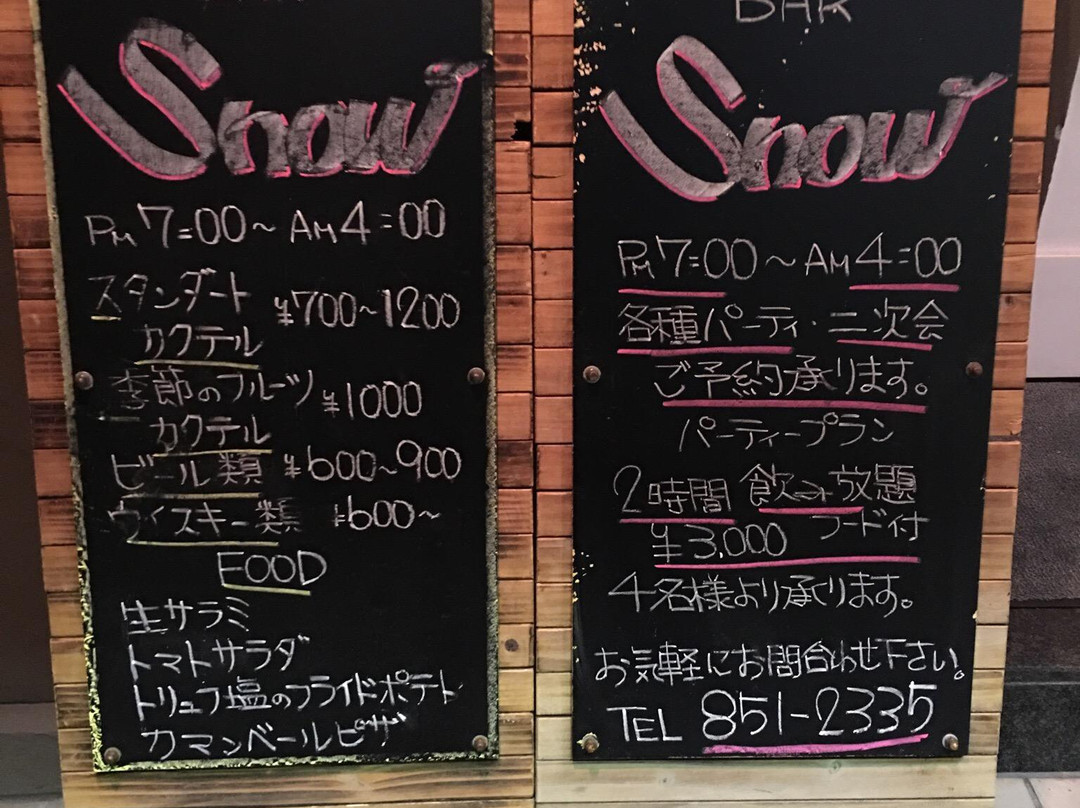 Snow
PM 7:00〜AM 4:00
スタンダート ¥700〜1200
カクテル
季節のフルーツ ¥1000
カクテル
ビール類 ¥600〜900
ウイスキー類 ¥600〜
FOOD
生サラミ
トマトサラダ
トリュフ塩のフライドポテト
カマンベールピザ
BAR
Snow
PM 7:00〜AM 4:00
各種パーティ・二次会
ご予約承ります。
パーティープラン
2時間 飲み放題
¥3,000 フード付
4名様より承ります。
お気軽にお問合わせ下さい。
TEL 851-2335